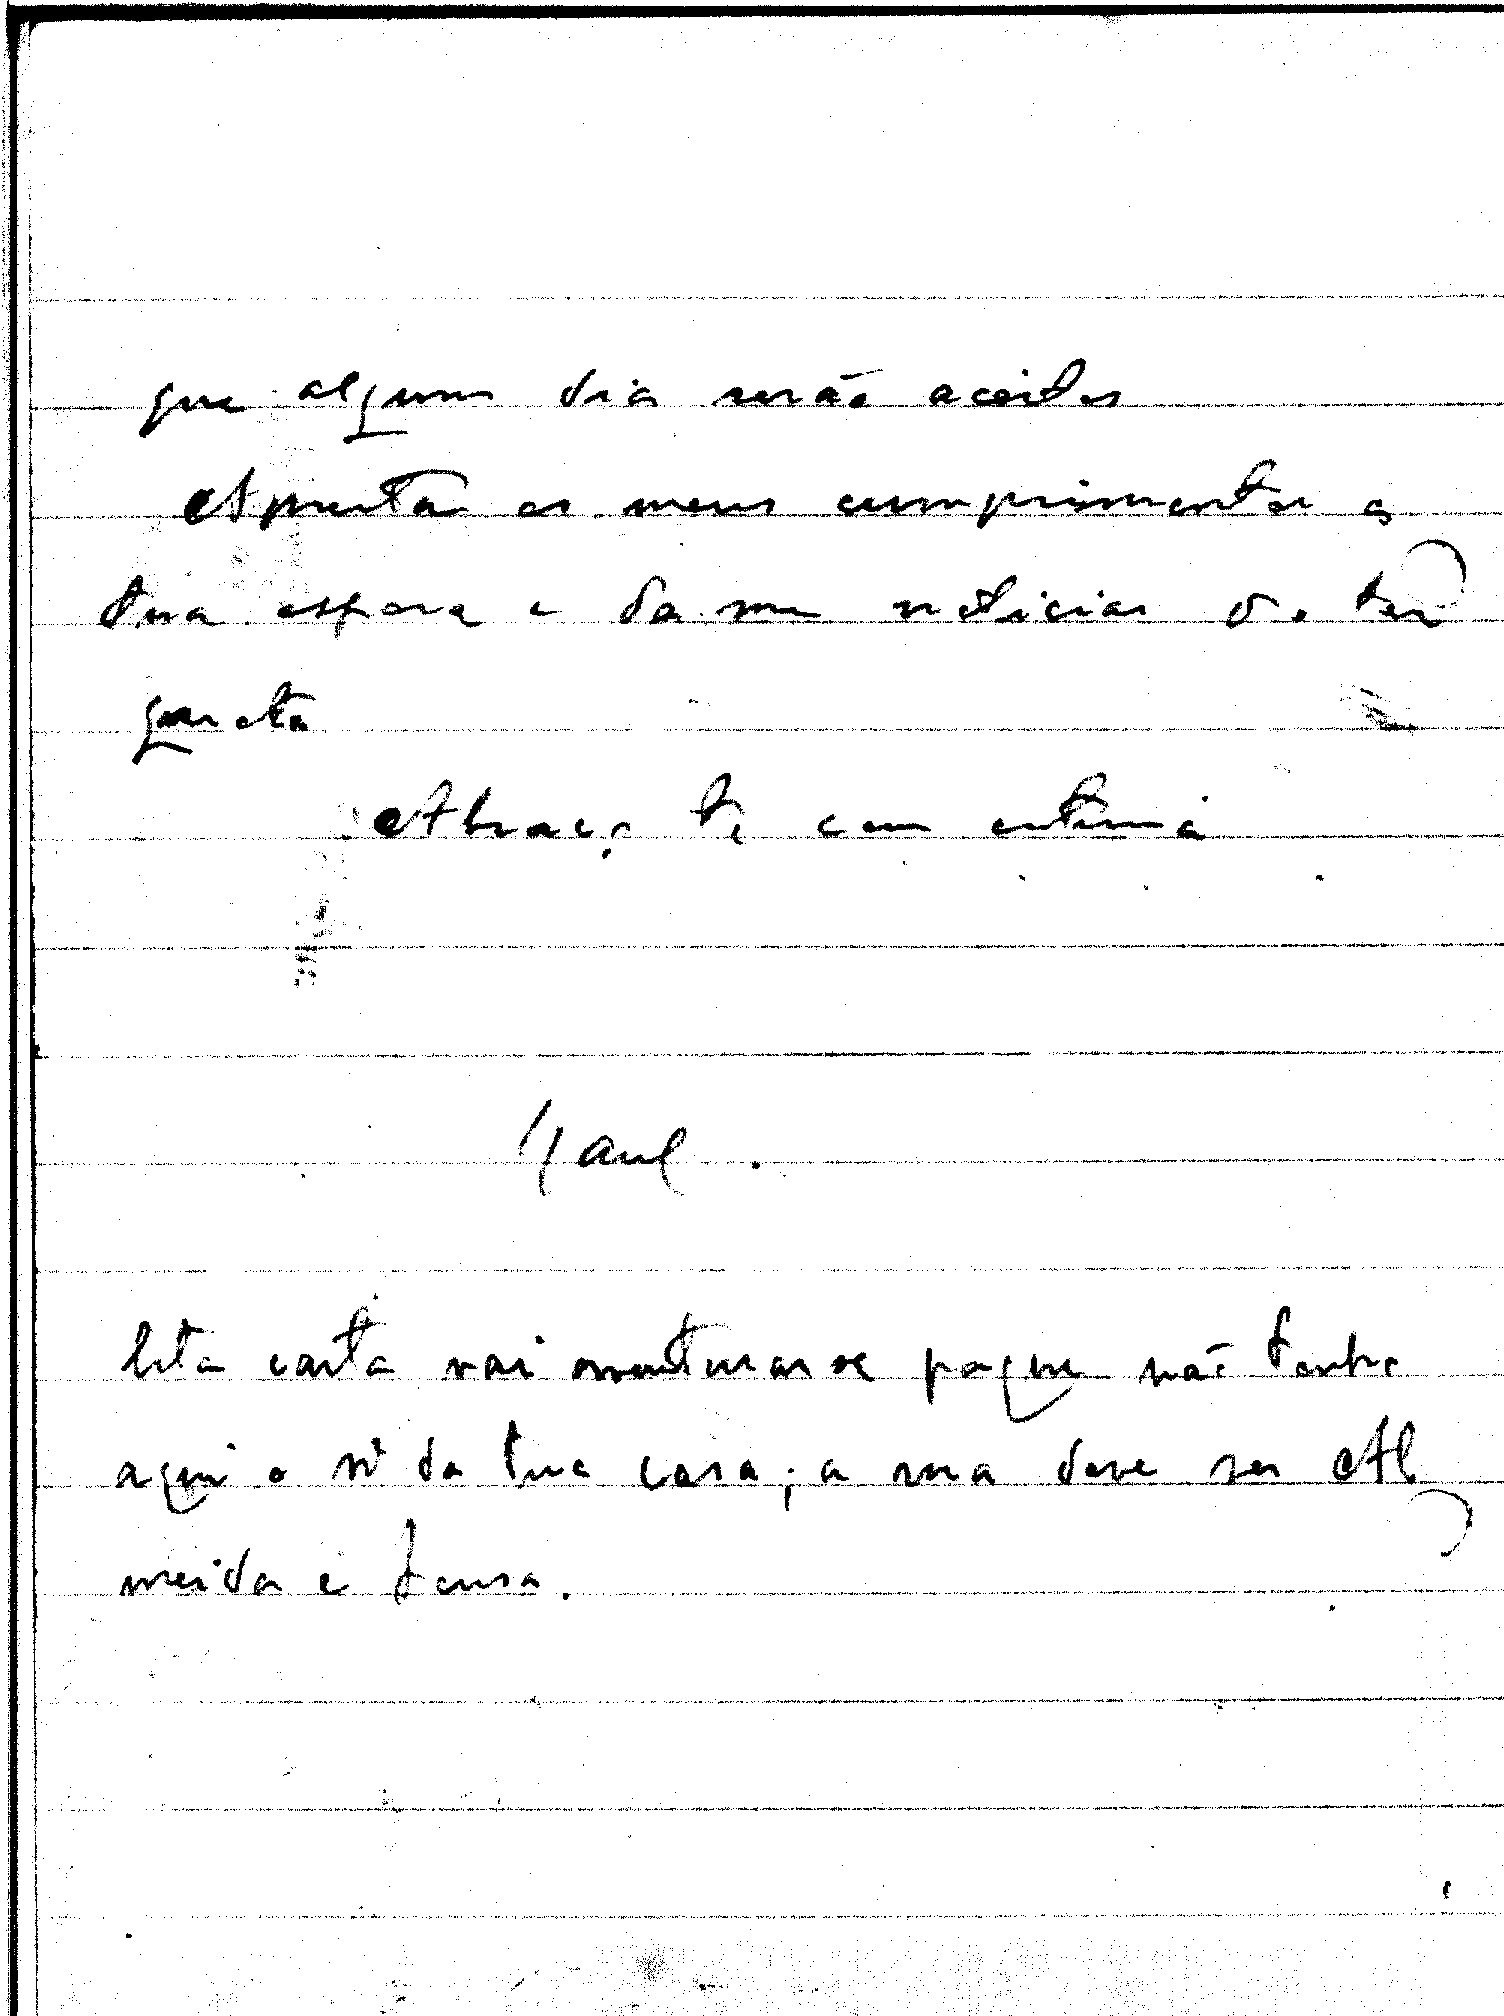 que algum dia serão aceites
Apresenta os meus cumprimentos a
tua esposa e da me noticias do teu
garoto
Abraço te com estima
Paul.
Esta carta vai aventurar se porque não tenho
aqui o nº da tua casa; a rua deve ser Al
meida e Sousa.